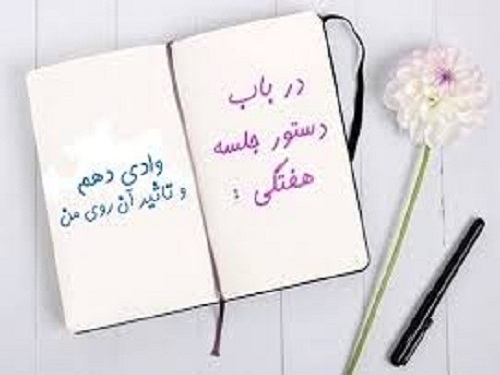 در باب
دستور جلسه
هفتگی :
وادی دهم
و تاثیر آن روی من